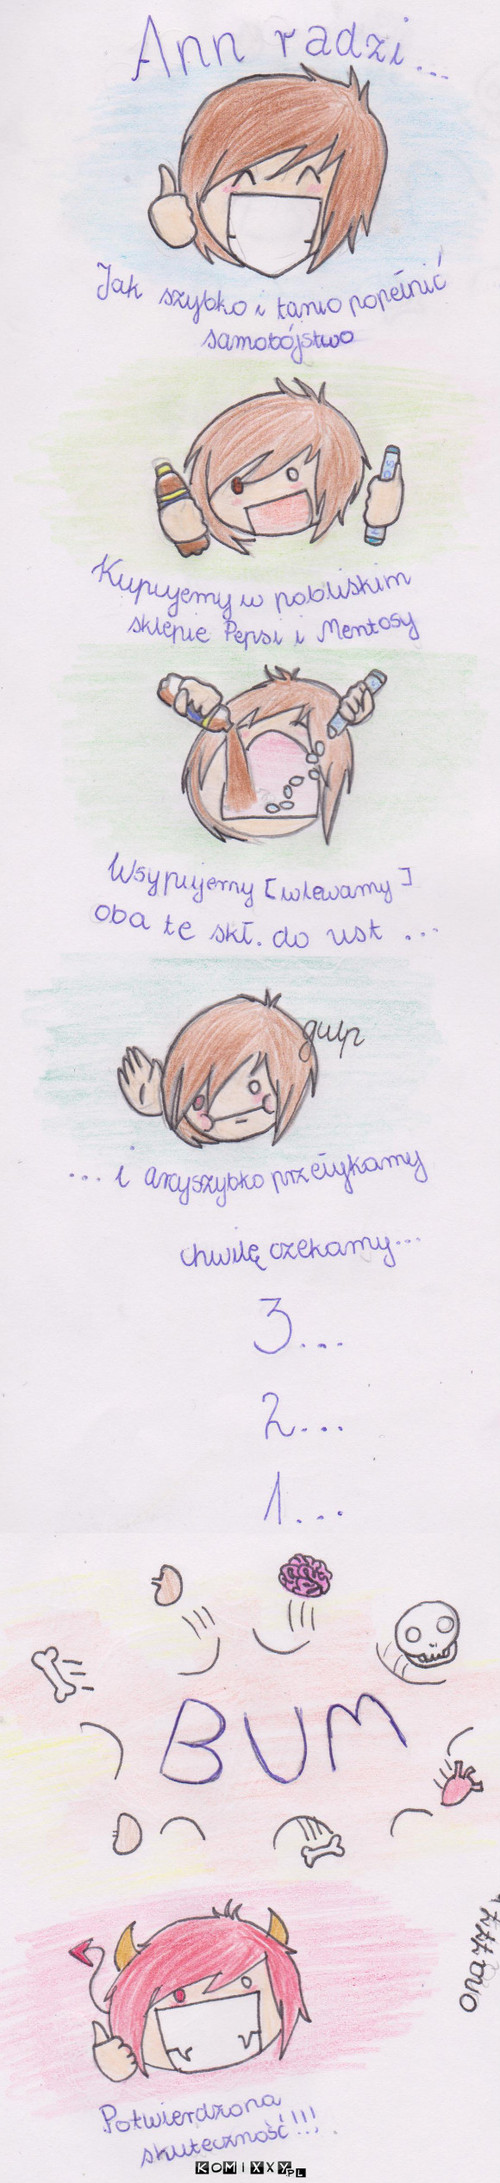 Ann radzi...
Jak szybko i tanio popełnić
samobójstwo
Kupujemy w pobliskim
sklepie Pepsi i Mentosy
Wsypujemy [wlewamy]
oba te skł. do ust ...
gulp
... i arcyszybko przełykamy
chwilę czekamy...
3...
2...
1...
BUM
ona777
Potwierdzona
skuteczność!!!
KOMIXXY.PL